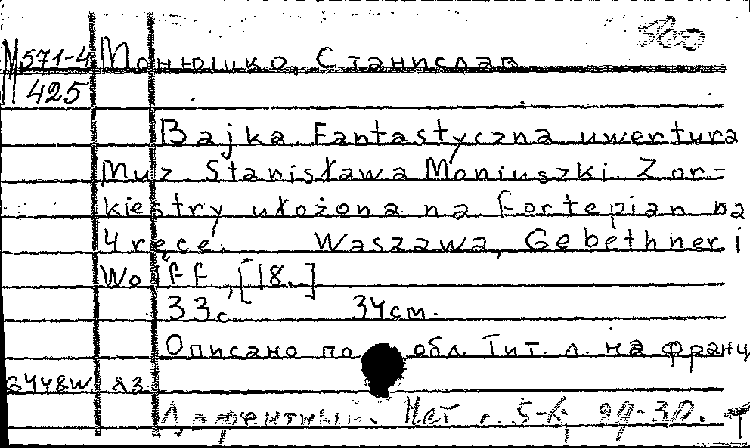 500
М571-4 Монюшко, Станислав
425
Bajka. Fantastyczna uwertura
Muz. Stanisława Moniuszki Z or-
kiestry ułożona na fortepian na
4 ręce. Waszawa, Gebethner i
Wolff, [18..]
33с. 34см.
Описано по обл. Тит. л. на франц
2448и 23
Дефектный. Нет с. 5-6, 29-30.